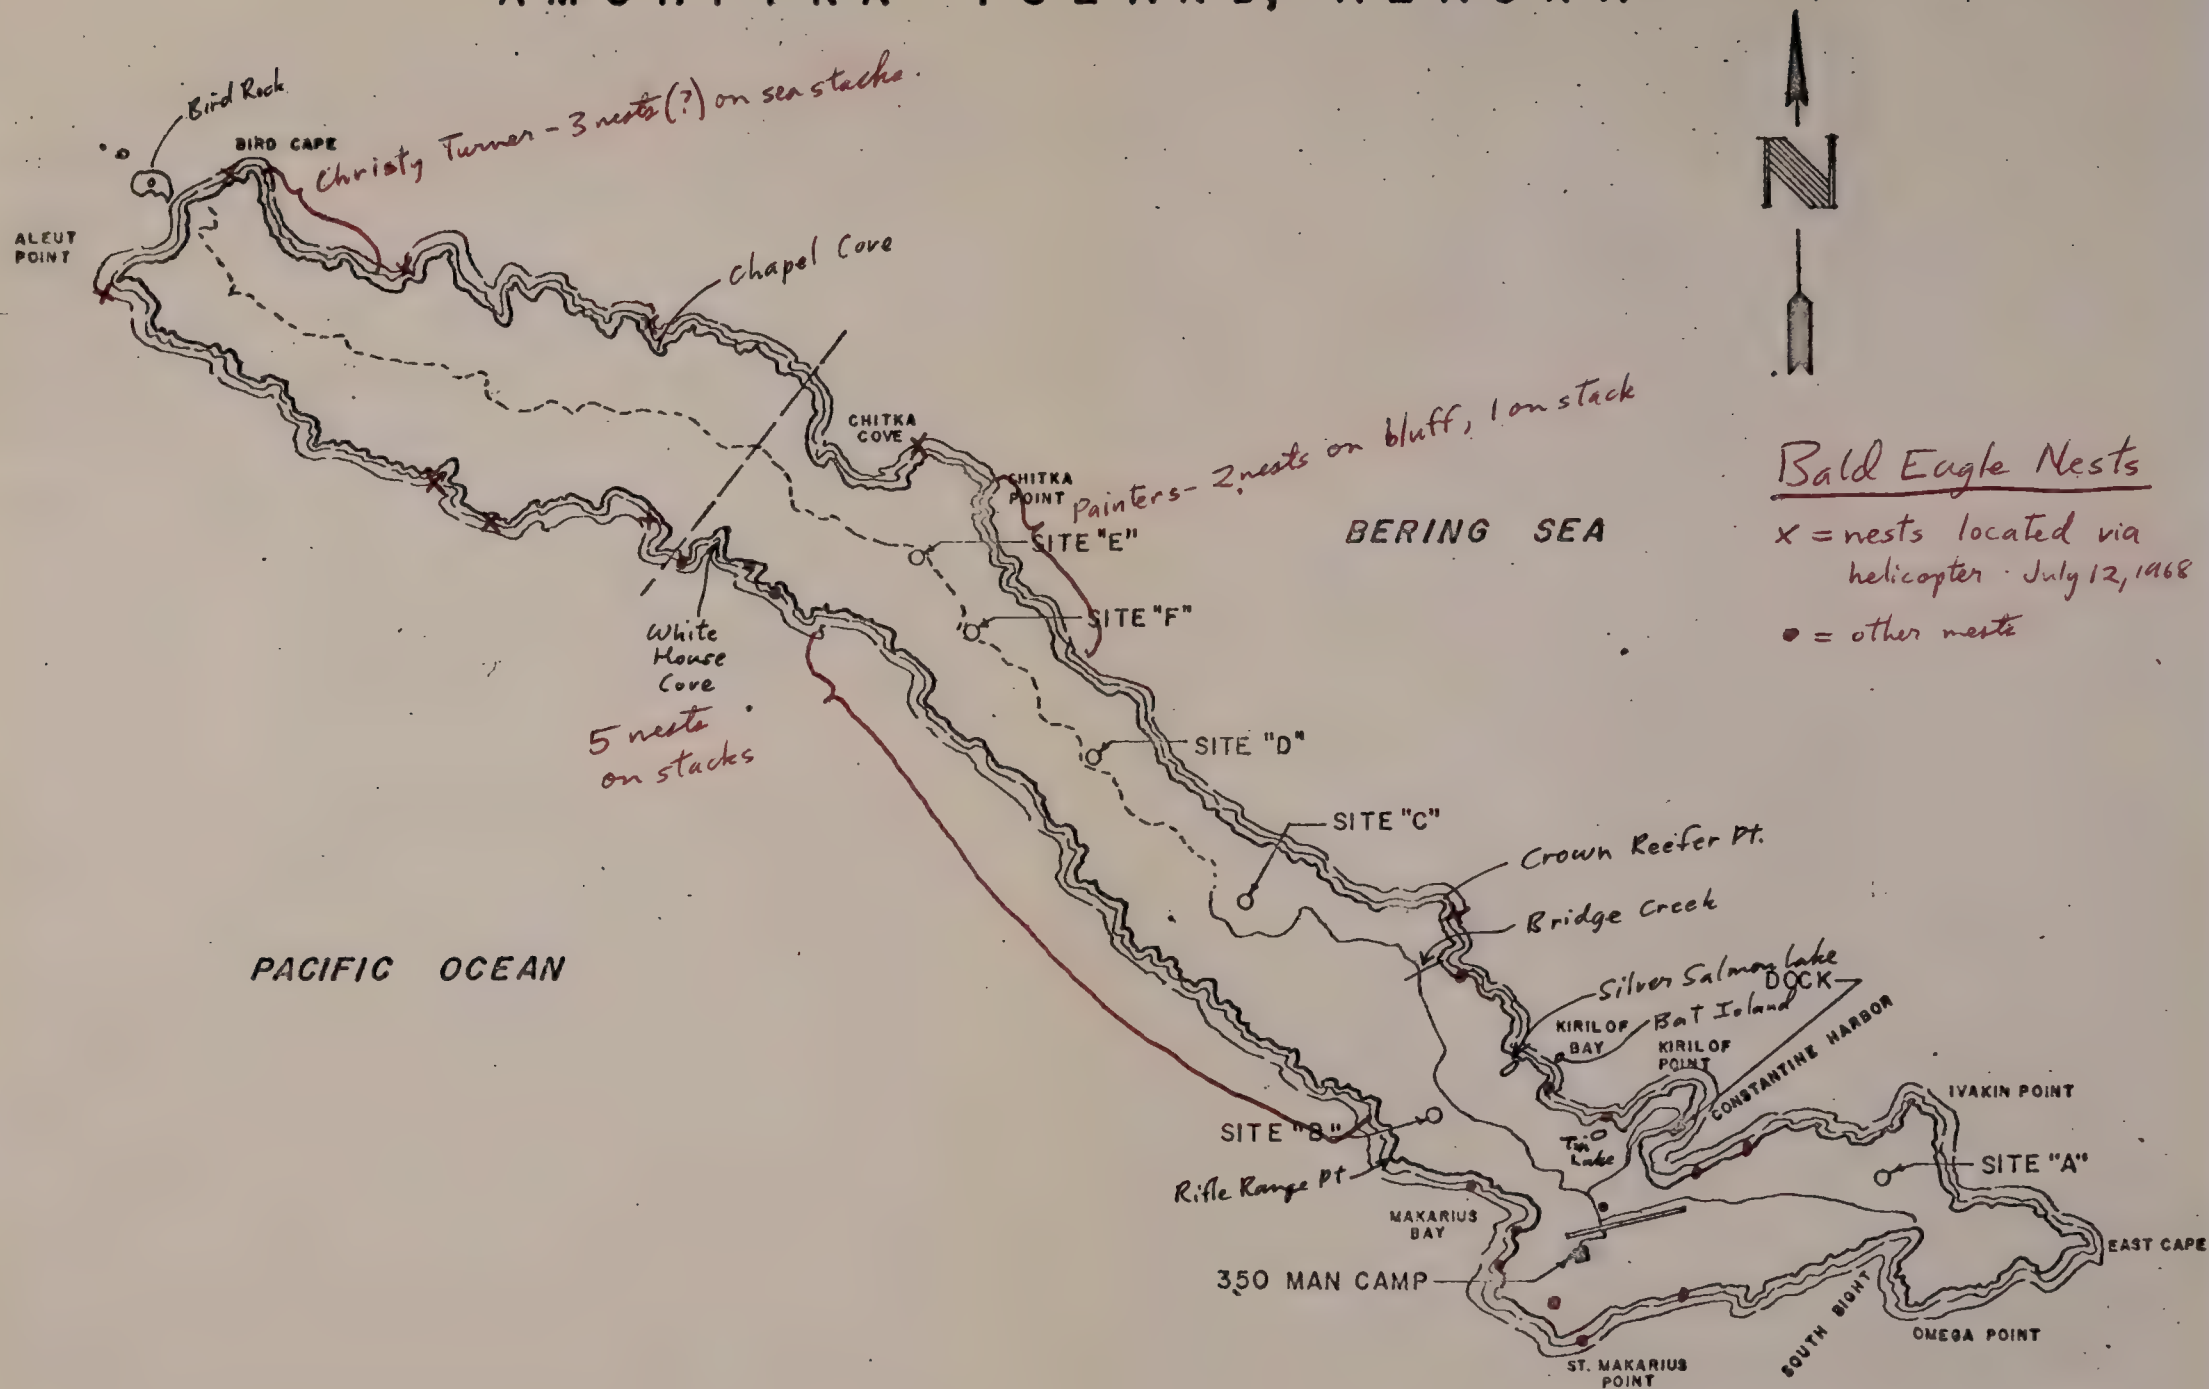 AMCHITKA ISLAND, ALASKA
Bird Rock
BIRD CAPE
Christy Turner - 3 nests (?) on sea stacks.
ALEUT
POINT
Chapel Cove
N
CHITKA
COVE
CHITKA
POINT
Painters - 2 nests on bluff, 1 on stack
Bald Eagle Nests
x = nests located via
helicopter July 12, 1968
• = other nests
BERING SEA
SITE "E"
SITE "F"
White
House
Cove
5 nests
on stacks
SITE "D"
SITE "C"
Crown Reefer Pt.
Bridge Creek
PACIFIC OCEAN
Silver Salmon Lake
DOCK
Bat Island
KIRILOF
BAY
KIRILOF
POINT
CONSTANTINE HARBOR
IVAKIN POINT
SITE "B"
Lake
SITE "A"
Rifle Range Pt
MAKARIUS
BAY
EAST CAPE
350 MAN CAMP
SOUTH BIGHT
OMEGA POINT
ST. MAKARIUS
POINT